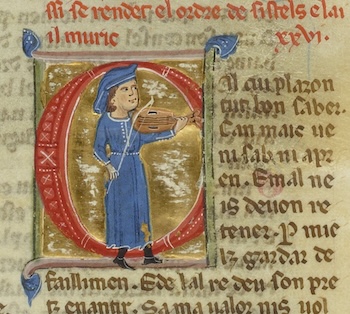 ssi se rendet el ordre de sistels e lai
il murie xxvi.
Cil cui plazon
tuit bon saber.
ni sab ni apr
en. E mal ne
is deuon re
tener. P mie
lz gardar de
faillimen. E de lal re deu son pre
tz enantir. Sa ma ualor nis uol